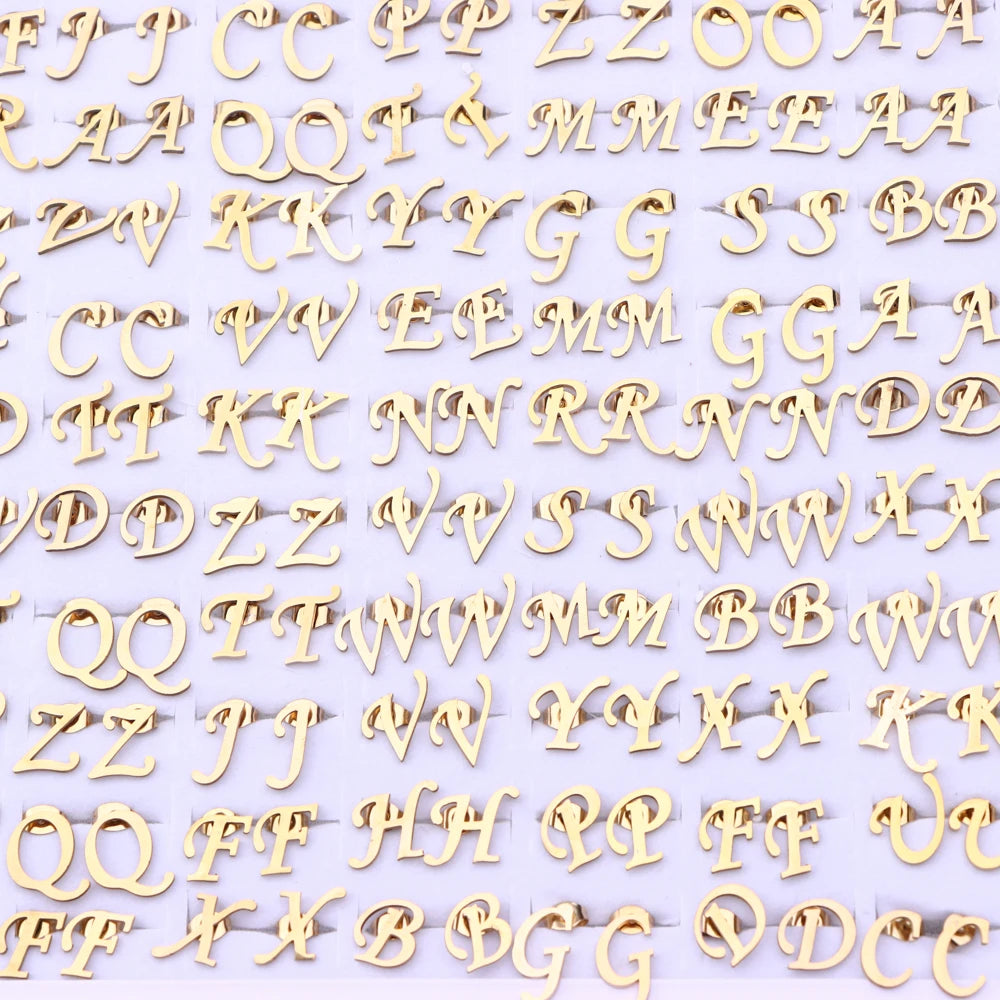 F J J C C P P Z Z O O A A
R A A Q Q T T M M E E A A
Z V K K Y Y G G S S B B
C C V V E E M M G G A A
D T T K K N N R R N N D D
V D D Z Z V V S S W W X X
Q Q T T W W M M B B W W
Z Z J J V V Y Y X X K K
Q Q F F H H P P F F U U
F F X X B B G G D D C C